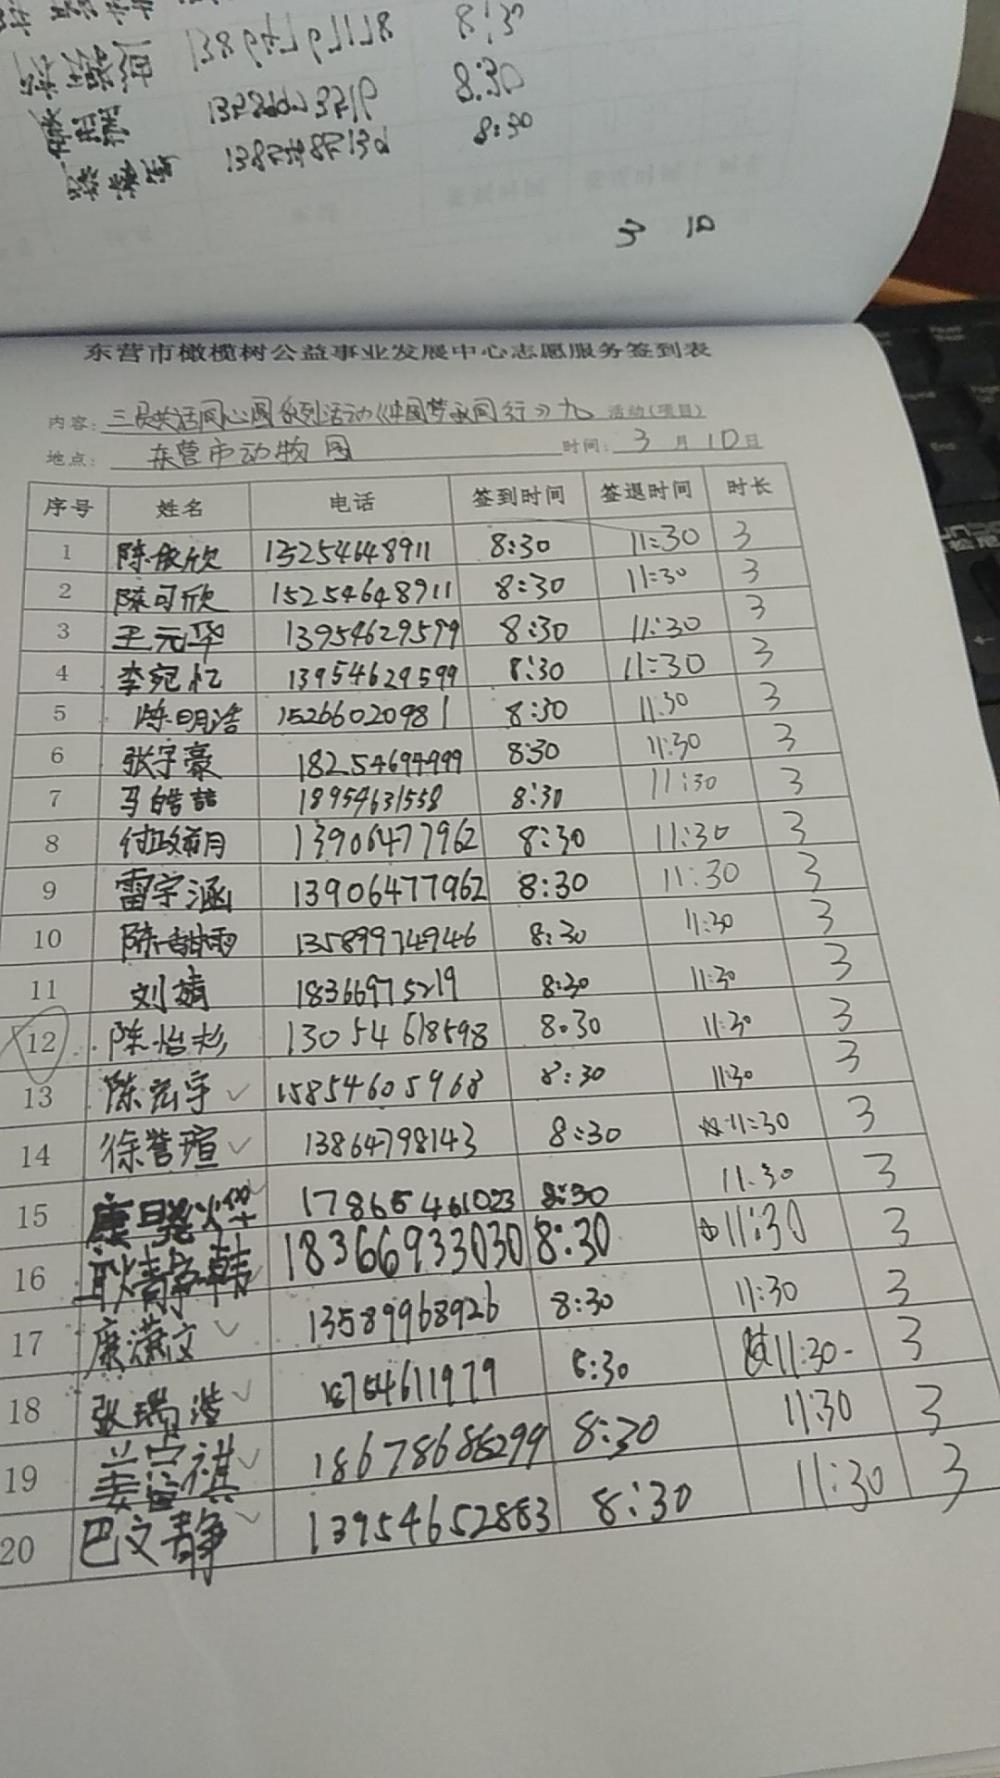 8:30
8:30
8:30
3 10
东营市橄榄树公益事业发展中心志愿服务签到表
内容: 三员共话同心圆系列活动《中国梦永同行》九 活动(项目)
地点: 东营市动物园 时间: 3 月 10 日
序号 姓名 电话 签到时间 签退时间 时长
1 陈俊欣 15254648911 8:30 11:30 3
2 陈可欣 15254648911 8:30 11:30 3
3 王元华 13954629599 8:30 11:30 3
4 李宛忆 13954629599 8:30 11:30 3
5 陈明浩 15266020981 8:30 11:30 3
6 张宇豪 18254694999 8:30 11:30 3
7 马皓喆 18954631558 8:30 11:30 3
8 13906477962 8:30 11:30 3
9 雷宇涵 13906477962 8:30 11:30 3
10 陈甜雨 13589974946 8:30 11:30 3
11 刘婧 18366975219 8:30 11:30 3
12 陈怡杉 13054618598 8:30 11:30 3
13 陈宏宇 15854605968 8:30 11:30 3
14 徐誉瑄 13864798143 8:30 11:30 3
15 康晓烨 17865461023 8:30 11:30 3
16 耿静韩 18366933030 8:30 11:30 3
17 康潇文 13589968926 8:30 11:30 3
18 张瑞滢 18754611979 8:30 11:30 3
19 姜宜祺 18678686299 8:30 11:30 3
20 巴文静 13954652883 8:30 11:30 3